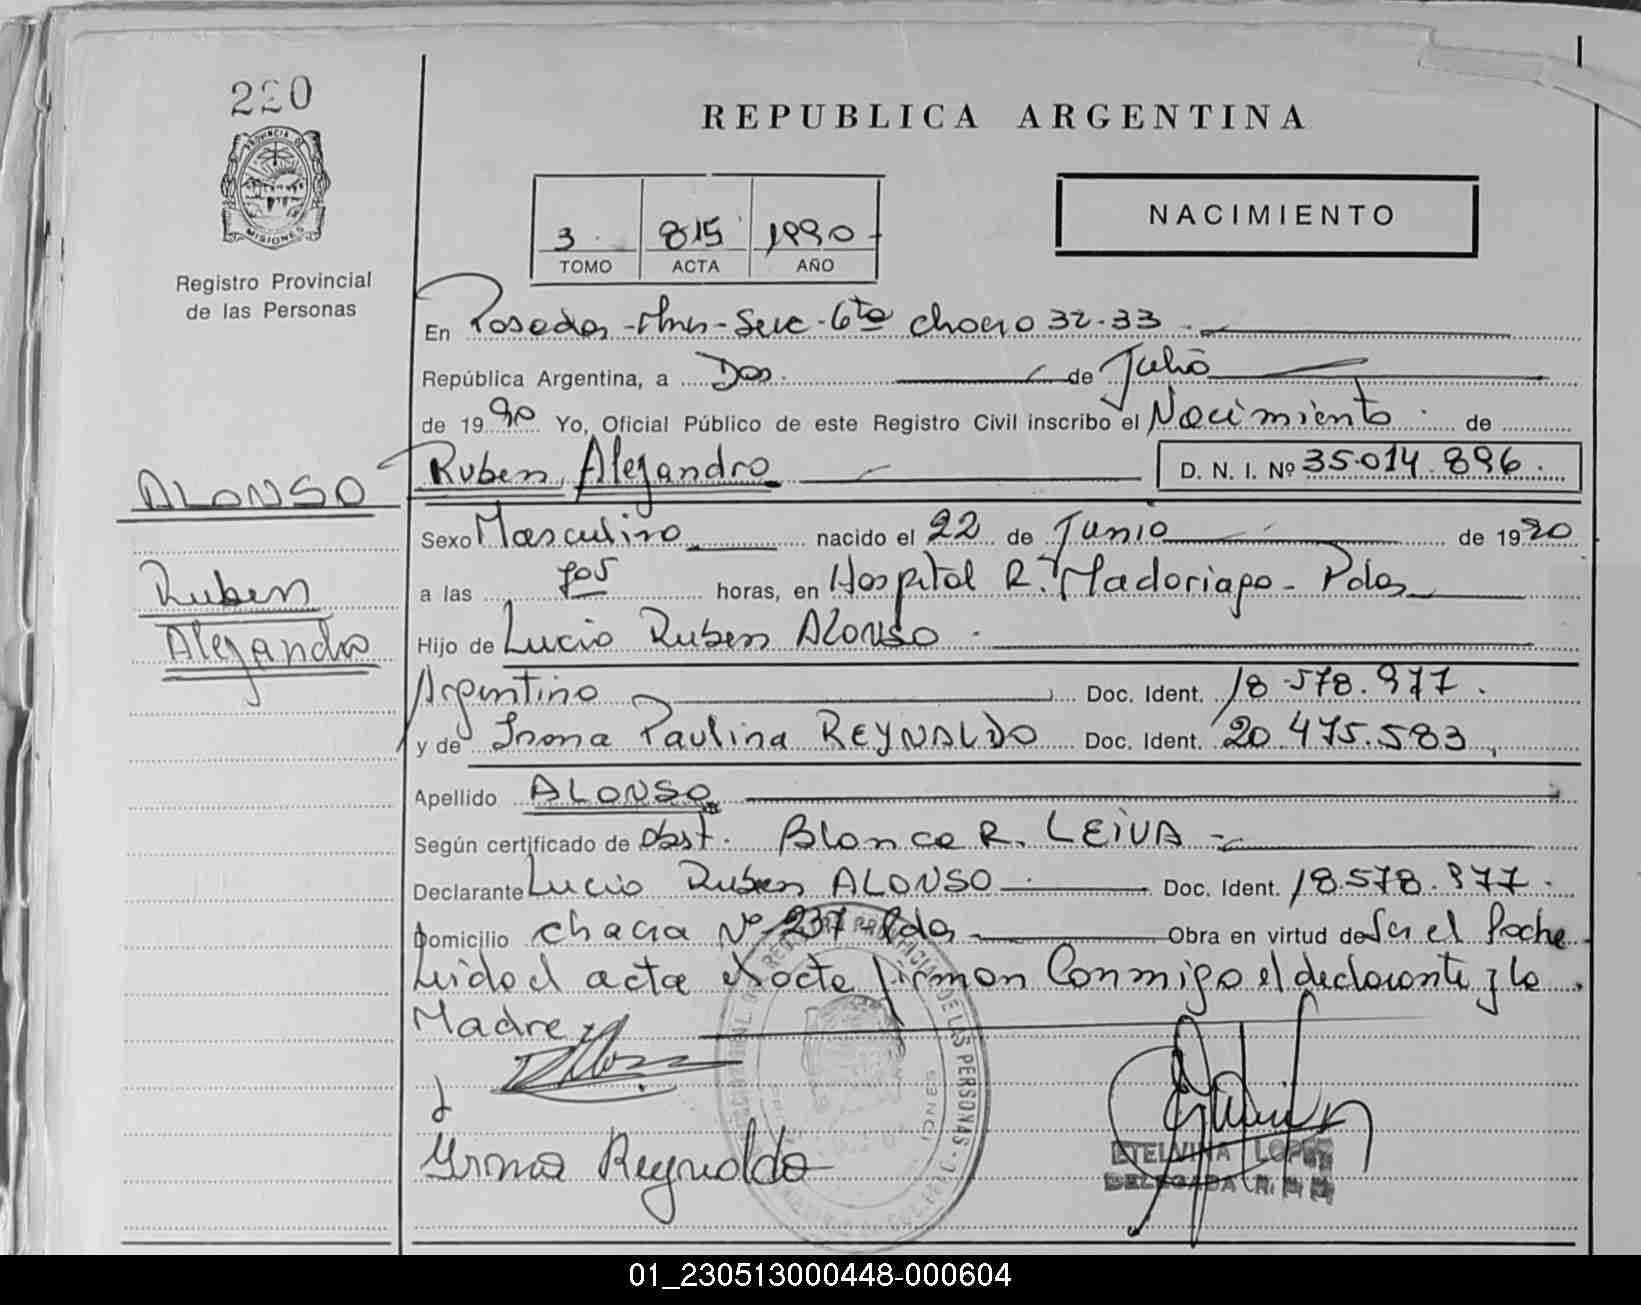 220
PROVINCIA DE
MISIONES
Registro Provincial
de las Personas
REPUBLICA ARGENTINA
3 815 1990
TOMO ACTA AÑO
NACIMIENTO
En Posadas-Mnes-Secc-6ta chacra 32-33
República Argentina, a Dos de Julio
de 1990 Yo, Oficial Público de este Registro Civil inscribo el Nacimiento de
Ruben Alejandro D. N. I. Nº 35.014.896.
ALONSO
Ruben
Alejandro
Sexo Masculino nacido el 22 de Junio de 1990
a las 705 horas, en Hospital R. Madariaga - Pdas
Hijo de Lucio Ruben ALONSO
Argentino Doc. Ident. 18.578.977.
y de Paulina REYNALDO Doc. Ident. 20.475.583
Apellido ALONSO
Según certificado de Obst. Blanca R. LEIVA
Declarante Lucio Ruben ALONSO Doc. Ident. 18.578.977.
Domicilio chacra Nº 237 Pdas Obra en virtud de Ser el Padre
Leida el acta firman Conmigo el declarante y la
Madre
Reynaldo
ETELVINA LOPEZ
DELEGADA R. P. P.
PROVINCIAL DE LAS PERSONAS
01_230513000448-000604